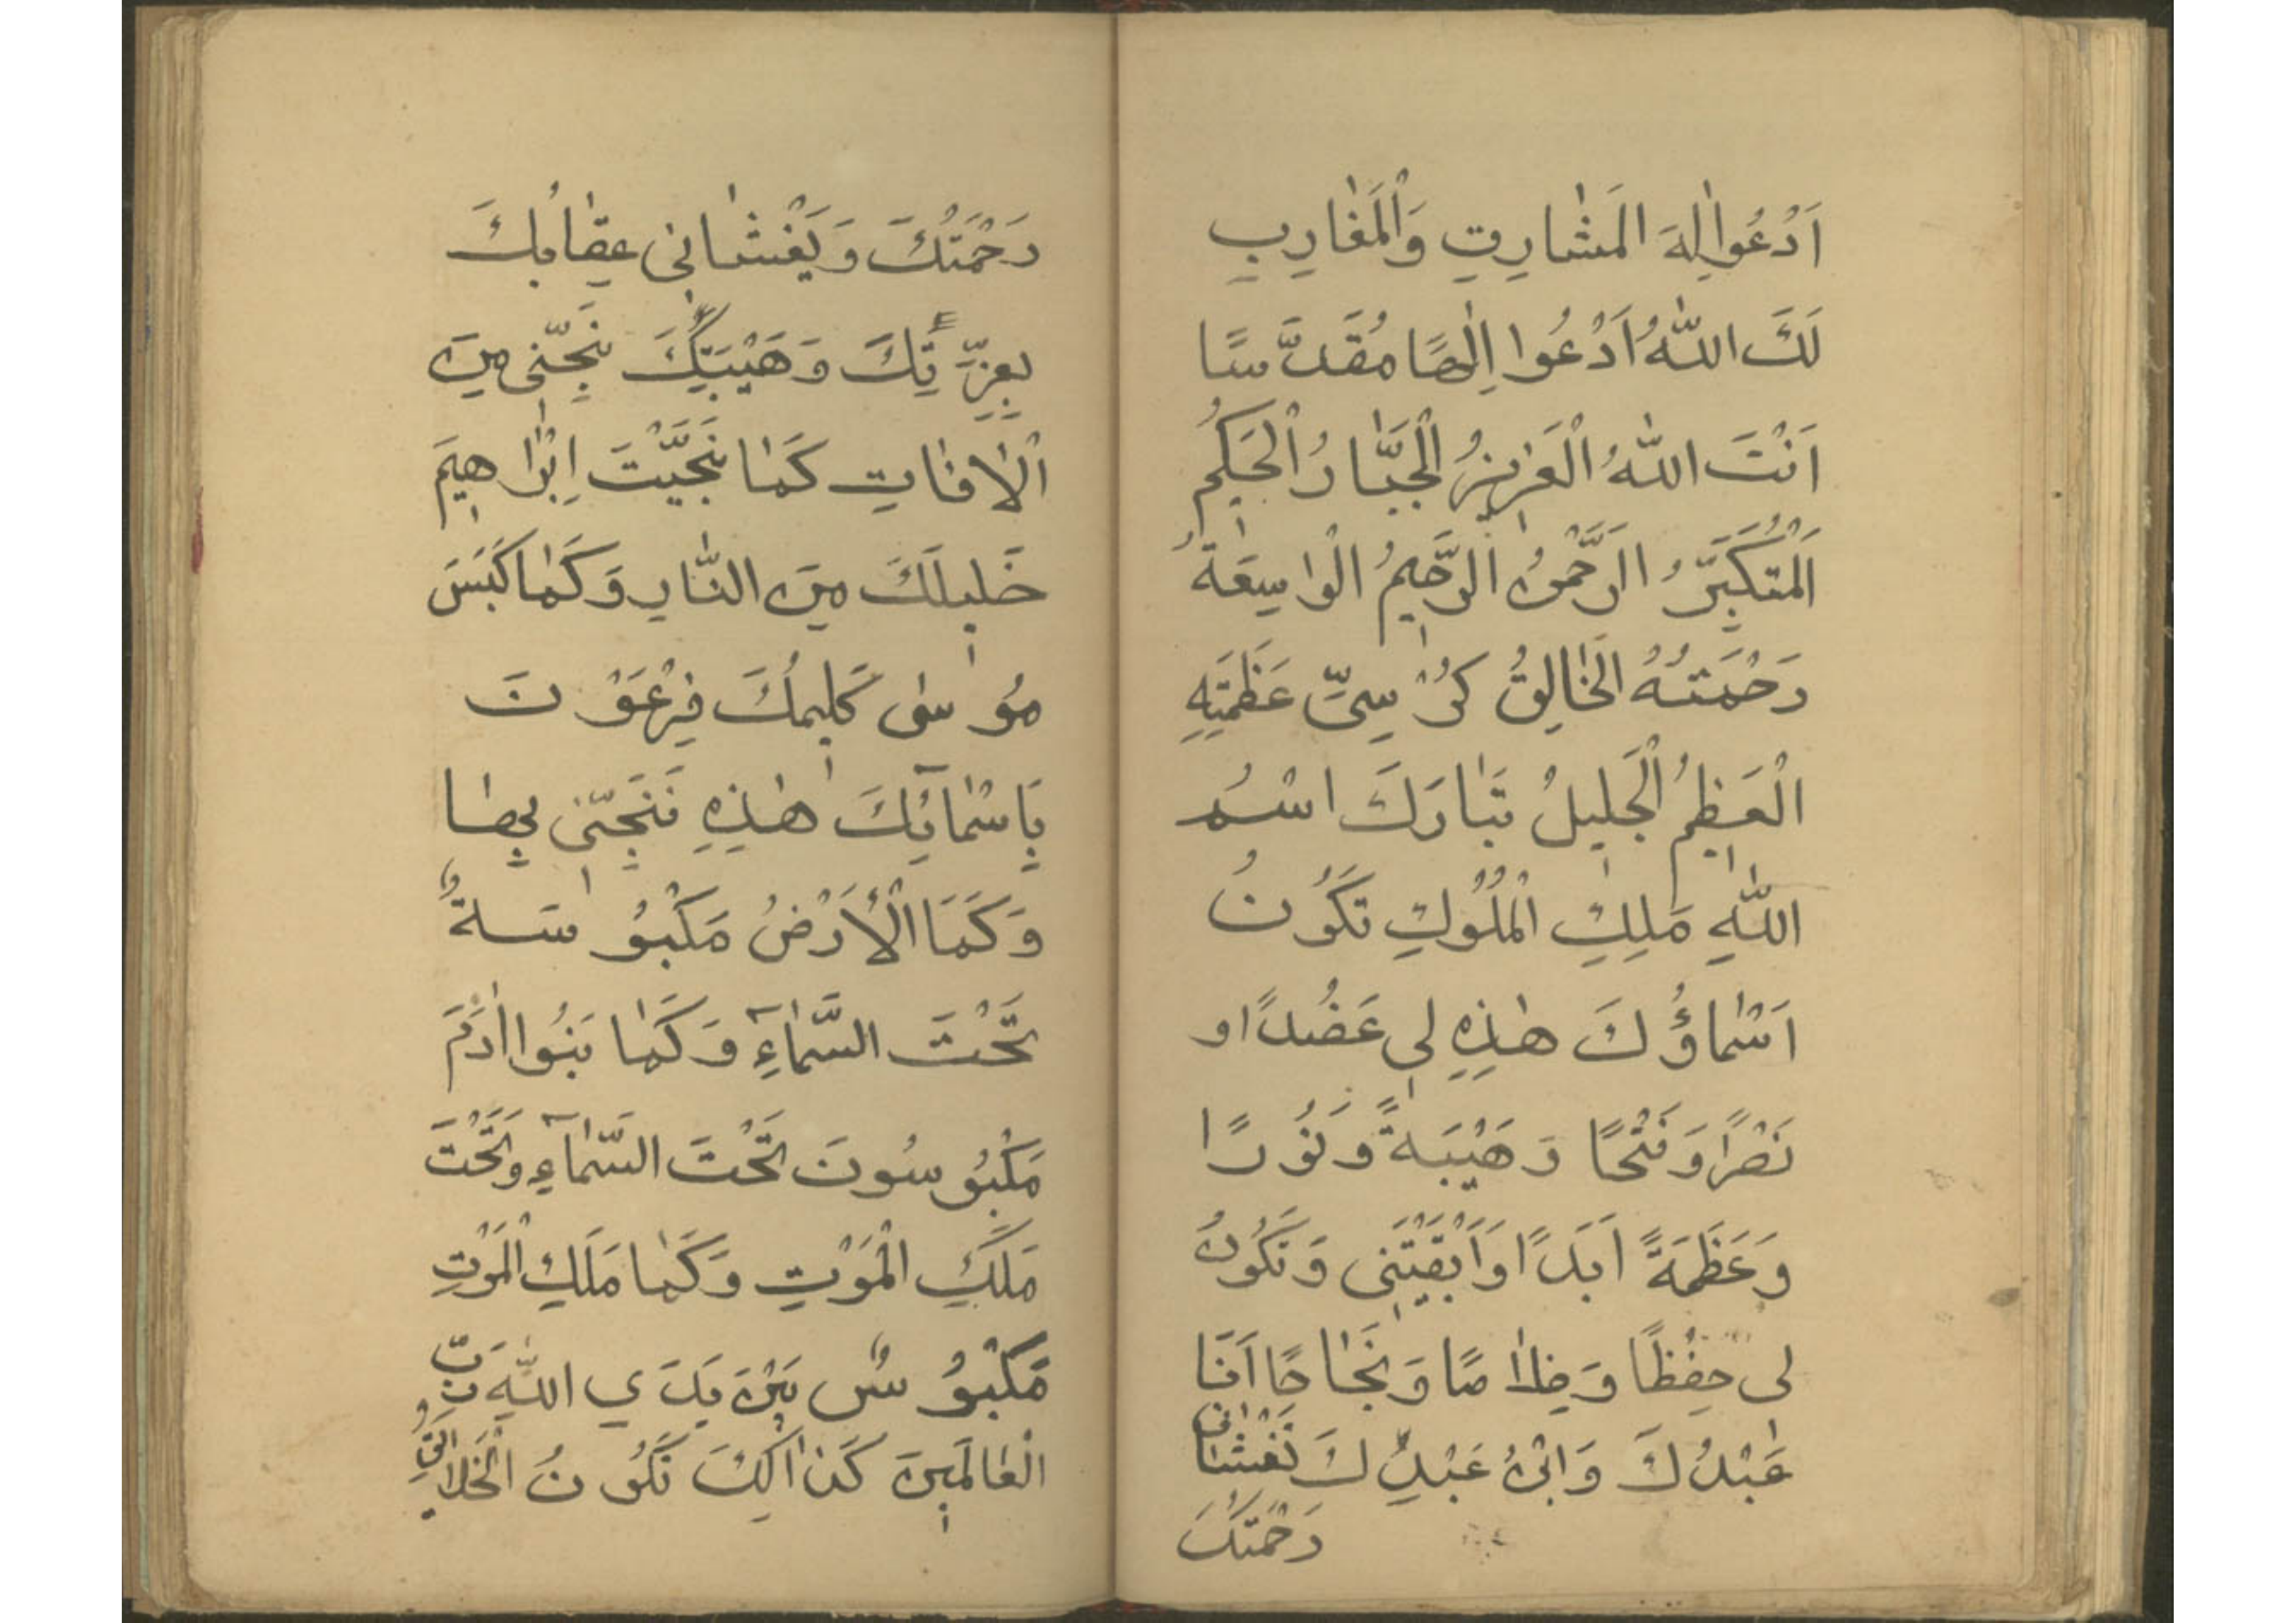 اَدْعُوا اِلٰهَ الْمَشٰارِقِ وَالْمَغٰارِبِ
لَكَ اللّٰهُ اَدْعُوا اِلٰهًا مُقَدَّسًا
اَنْتَ اللّٰهُ الْعَزِيزُ الْجَبَّارُ الْحَكِيمُ
اَلْمُتَكَبِّرُ الرَّحْمٰنُ الرَّحِيمُ الْوٰاسِعَةُ
رَحْمَتُهُ الْخٰالِقُ كُرْسِيِّ عَظَمَتِهِ
الْعَظِيمُ الْجَلِيلُ تَبٰارَكَ اسْمُ
اللّٰهِ مَلِكِ الْمُلُوكِ تَكُونُ
اَسْمٰاؤُكَ هٰذِهِ لِي عَضُدًا و
نَصْرًا وَفَتْحًا وَهَيْبَةً وَنُورًا
وَعَظَمَةً اَبَدًا وَاَبْقَيْتَنِي وَتَكُونُ
لِي حِفْظًا وَخِلاٰصًا وَنَجٰاحًا اَنَا
عَبْدُكَ وَابْنُ عَبْدِكَ تَغْشٰانِي
رَحْمَتُكَ
رَحْمَتُكَ وَيَغْشٰانِي عِقٰابُكَ
بِعِزَّتِكَ وَهَيْبَتِكَ نَجِّنِي مِنَ
الْاٰفٰاتِ كَمٰا نَجَّيْتَ اِبْرٰاهِيمَ
خَلِيلَكَ مِنَ النّٰارِ وَكَمٰا كَبَسَ
مُوسٰى كَلِيمُكَ فِرْعَوْنَ
بِاَسْمٰآئِكَ هٰذِهِ فَنَجِّنِي بِهٰا
وَكَمَا الْأَرْضُ مَكْبُوسَةٌ
تَحْتَ السَّمٰآءِ وَكَمٰا بَنُوا اٰدَمَ
مَكْبُوسُونَ تَحْتَ السَّمٰآءِ وَتَحْتَ
مَلَكِ الْمَوْتِ وَكَمٰا مَلَكِ الْمَوْتِ
مَكْبُوسٌ بَيْنَ يَدَيِ اللّٰهِ رَبِّ
الْعٰالَمِينَ كَذٰالِكَ تَكُونُ الْخَلاٰئِقُ